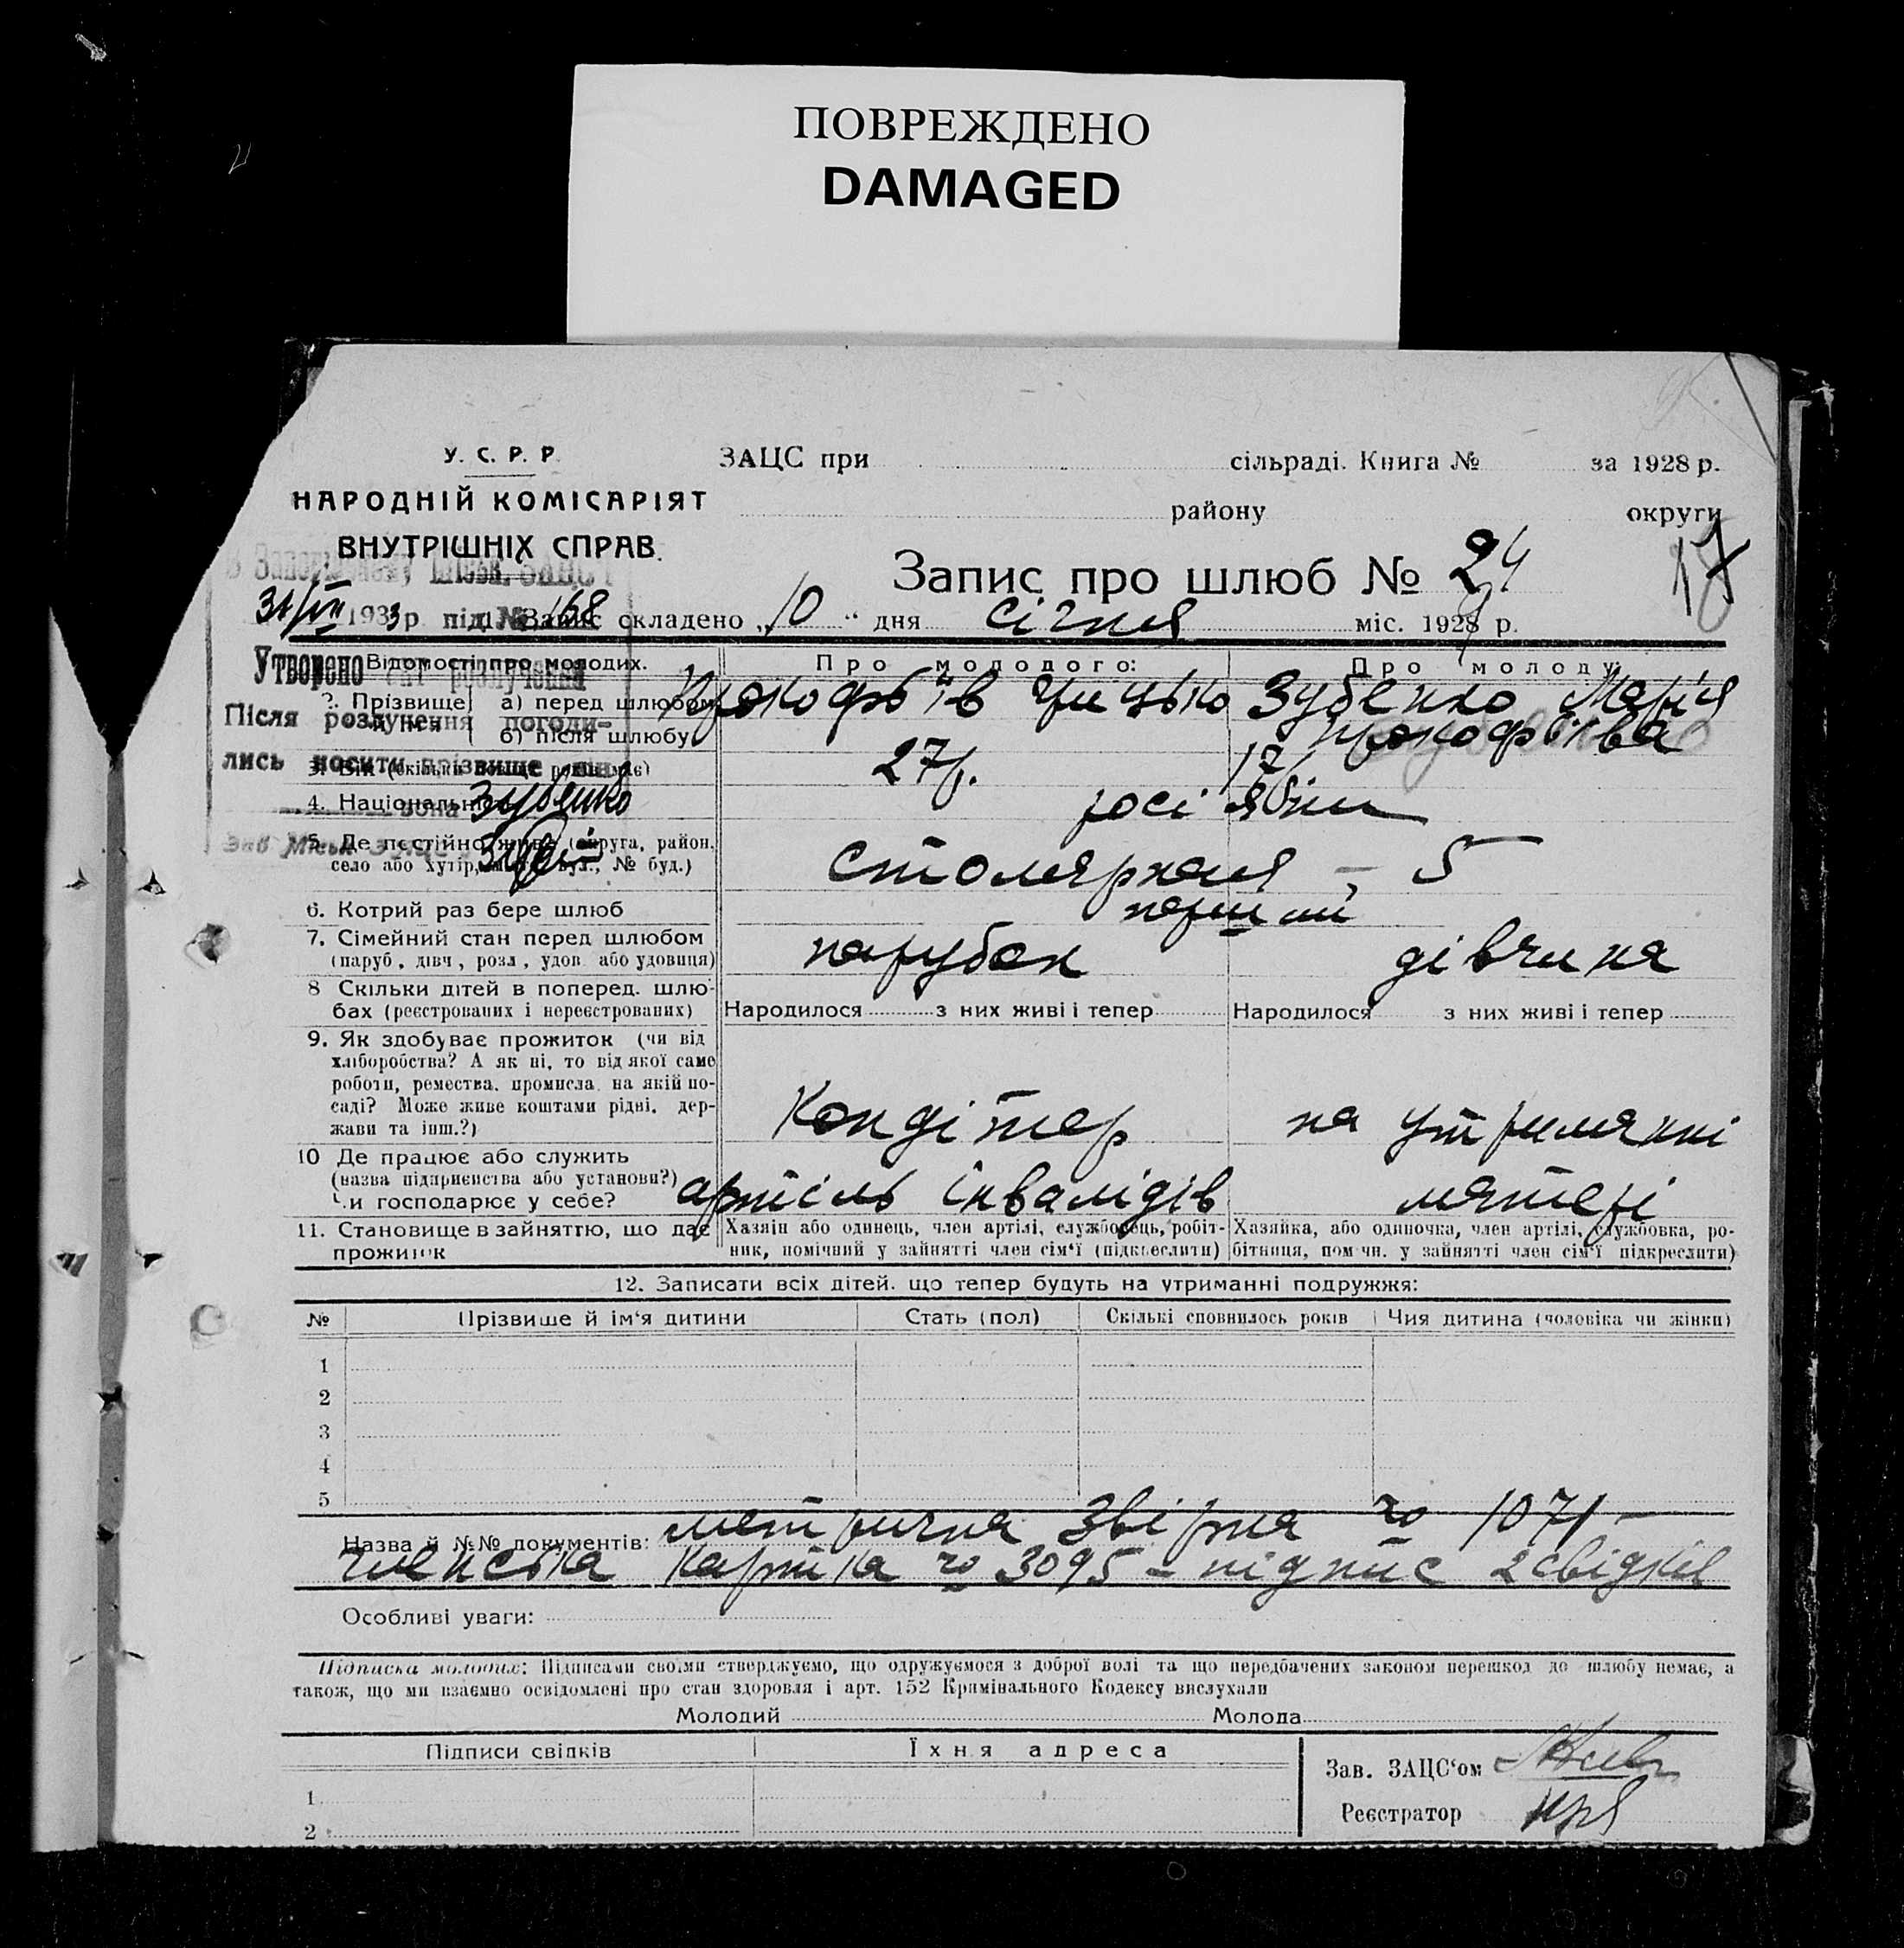 ПОВРЕЖДЕНО
DAMAGED
У. С. Р. Р.
НАРОДНІЙ КОМІСАРІЯТ
ВНУТРІШНІХ СПРАВ.
ЗАЦС при сільраді. Книга № за 1928 р.
району округи
17
Запис про шлюб № 24
Запис складено „10“ дня січня міс. 1928 р.
В Запорізькому міськ. ЗАЦСІ
31/VII 1933 р під № 168
Утворено акт розлучення
Після розлучення погоди-
лись носити прізвище він
вона Зубенко
Зав Міськ ЗАЦС
Відомості про молодих. Про молодого: Про молоду:
2. Прізвище й ім'я а) перед шлюбом Прокоф'їв Грицько Зубенко Марія
б) після шлюбу Прокоф'їва
3. Вік (скільки років має) 27 р. 17
4. Національність росіяни
5. Де постійно живе (округа, район, село або хутір, вул., № буд.) Столярная, 5
6. Котрий раз бере шлюб перший
7. Сімейний стан перед шлюбом парубок дівчина
(паруб., дівч., розл., удов. або удовиця)
8 Скільки дітей в поперед. шлю-
бах (реєстрованих і нереєстрованих) Народилося з них живі і тепер Народилося з них живі і тепер
9. Як здобуває прожиток (чи від
хліборобства? А як ні, то від якої саме
роботи, ремества, промисла, на якій по-
саді? Може живе коштами рідні, дер-
жави та інш.?) Кондітер на утриманні
10 Де працює або служить
(назва підприємства або установи?)
Чи господарює у себе? артіль інвалідів матері
11. Становище в зайняттю, що дає
прожиток
Хазяїн або одинець, член артілі, службовець, робіт-
ник, помічний у зайнятті член сім'ї (підкреслити)
Хазяйка, або одиночка, член артілі, службовка, ро-
бітниця, пом чн. у зайнятті член сім'ї підкреслити)
12. Записати всіх дітей, що тепер будуть на утриманні подружжя:
№ Прізвише й ім'я дитини Стать (пол) Скількі сповнилось років Чия дитина (чоловіка чи жінки)
1
2
3
4
5
Назва й №№ документів: метрична звірка № 1071 –
членська картка № 3095 – підпис 2 свідків
Особливі уваги:
Підписка молодих: Підписами своїми стверджуємо, що одружуємося з доброї волі та що передбачених законом перешкод до шлюбу немає, а
також, що ми взаємно освідомлені про стан здоровля і арт. 152 Кримінального Кодексу вислухали
Молодий Молода
Підписи свідків Їхня адреса
1
2
Зав. ЗАЦС'ом
Реєстратор